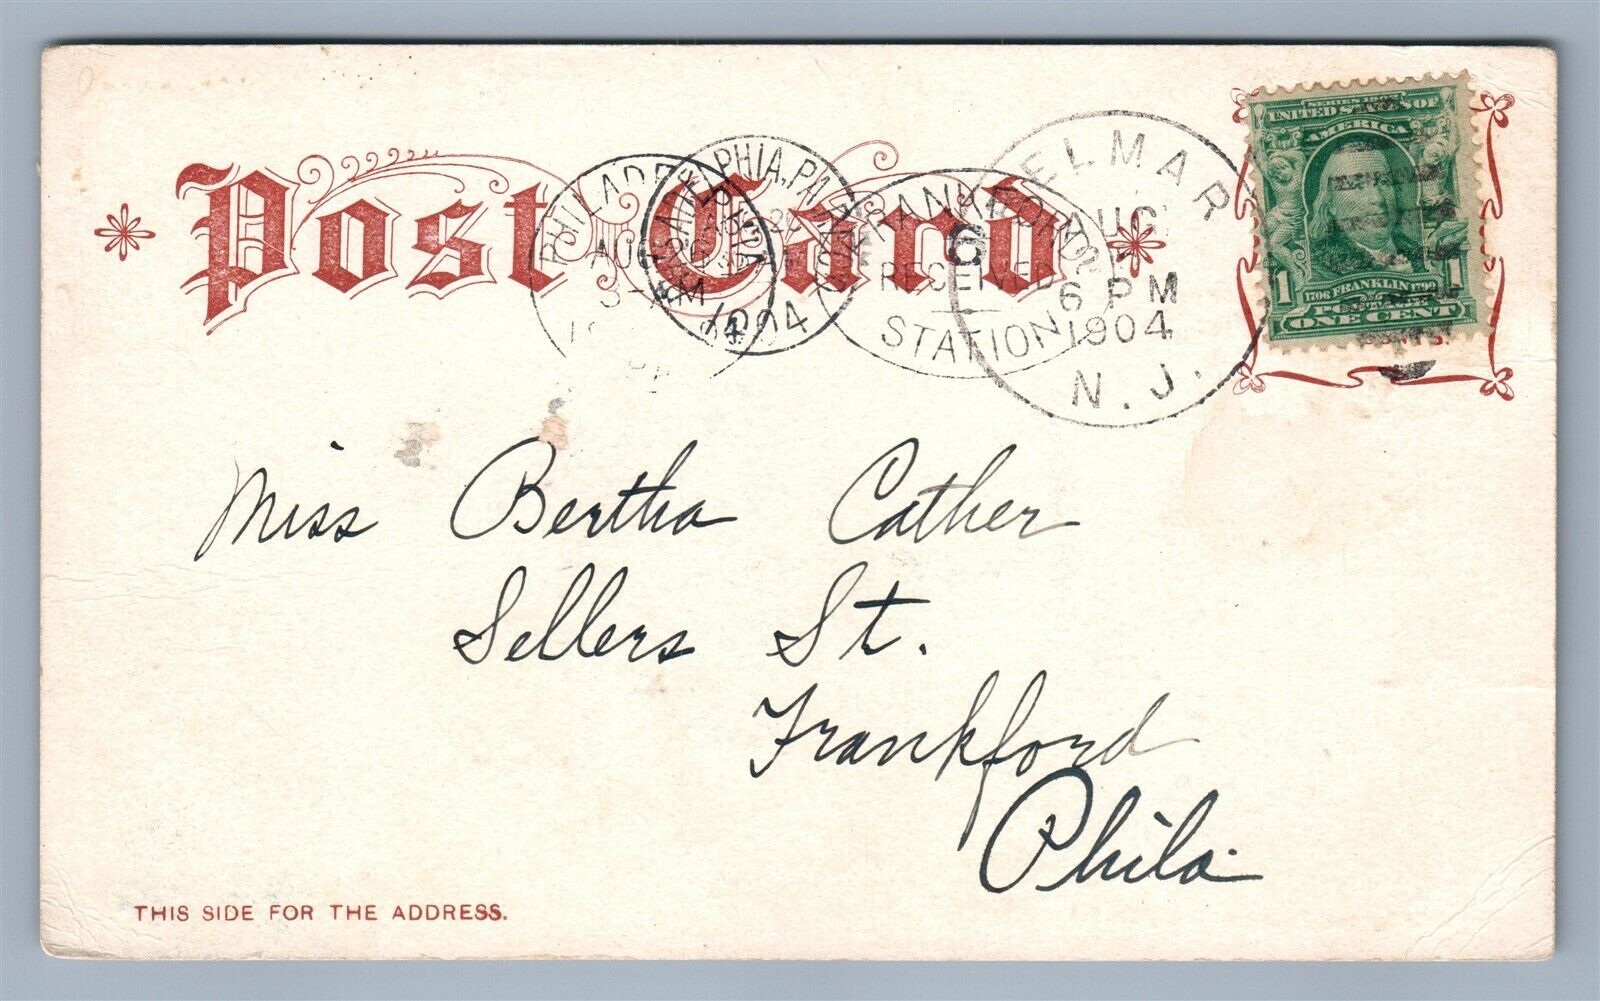 Post Card
PHILADELPHIA, PA.
1904
FRANKFORD
RECEIVED
STATION
ELMAR
AUG
6 PM
1904
N. J.
SERIES 1902
UNITED STATES OF
AMERICA
1 1
1706 FRANKLIN 1790
POSTAGE
ONE CENT
Miss Bertha Cather
Sellers St.
Frankford
Phila.
THIS SIDE FOR THE ADDRESS.